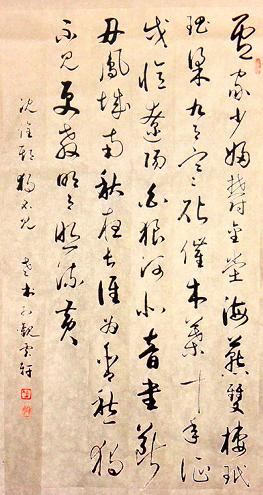 盧家少婦鬱金堂海燕雙棲玳
瑁梁九月寒砧催木葉十年征
戍憶遼陽白狼河北音書斷
丹鳳城南秋夜長誰為含愁獨
不見更教明月照流黃
沈佺期獨不見 觀雲軒